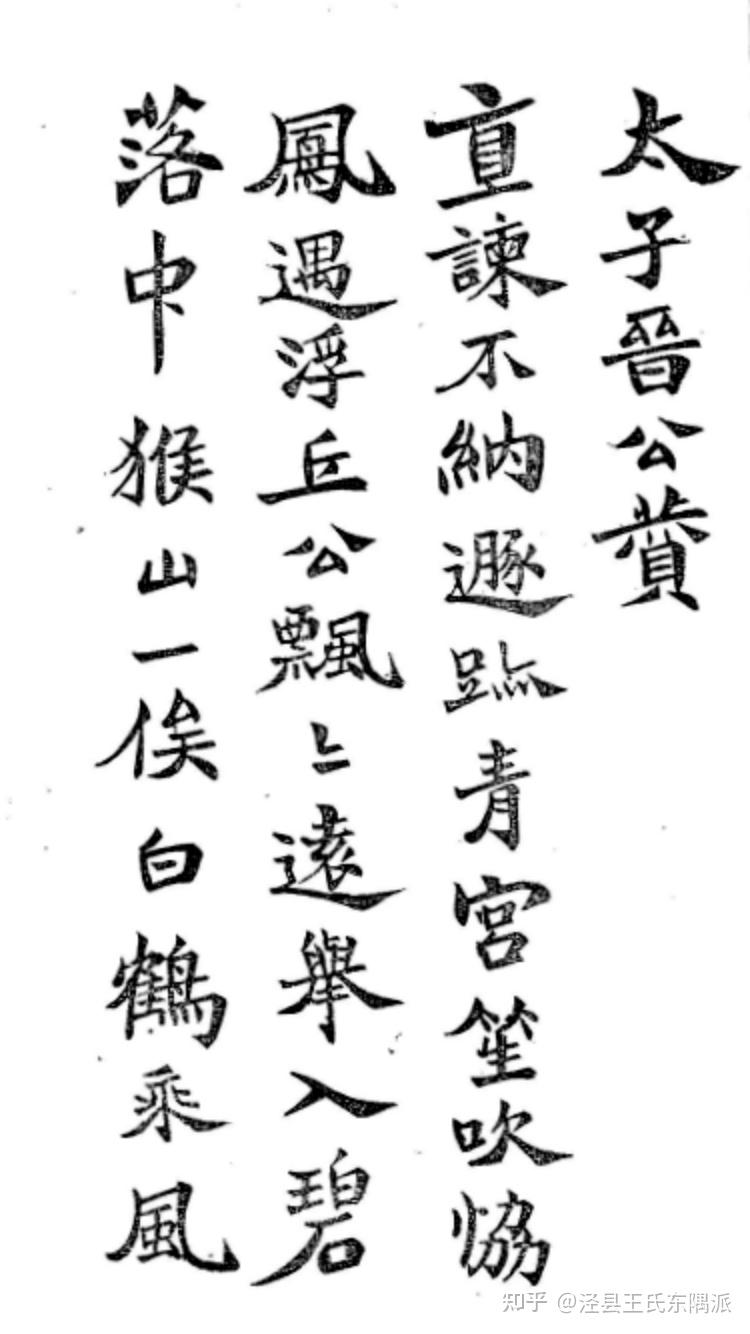 太子晉公贊
直諫不納遯跡青宮笙吹恊
鳳遇浮丘公飄〻遠舉入碧
落中猴山一俟白鶴乘風
知乎 @泾县王氏东隅派